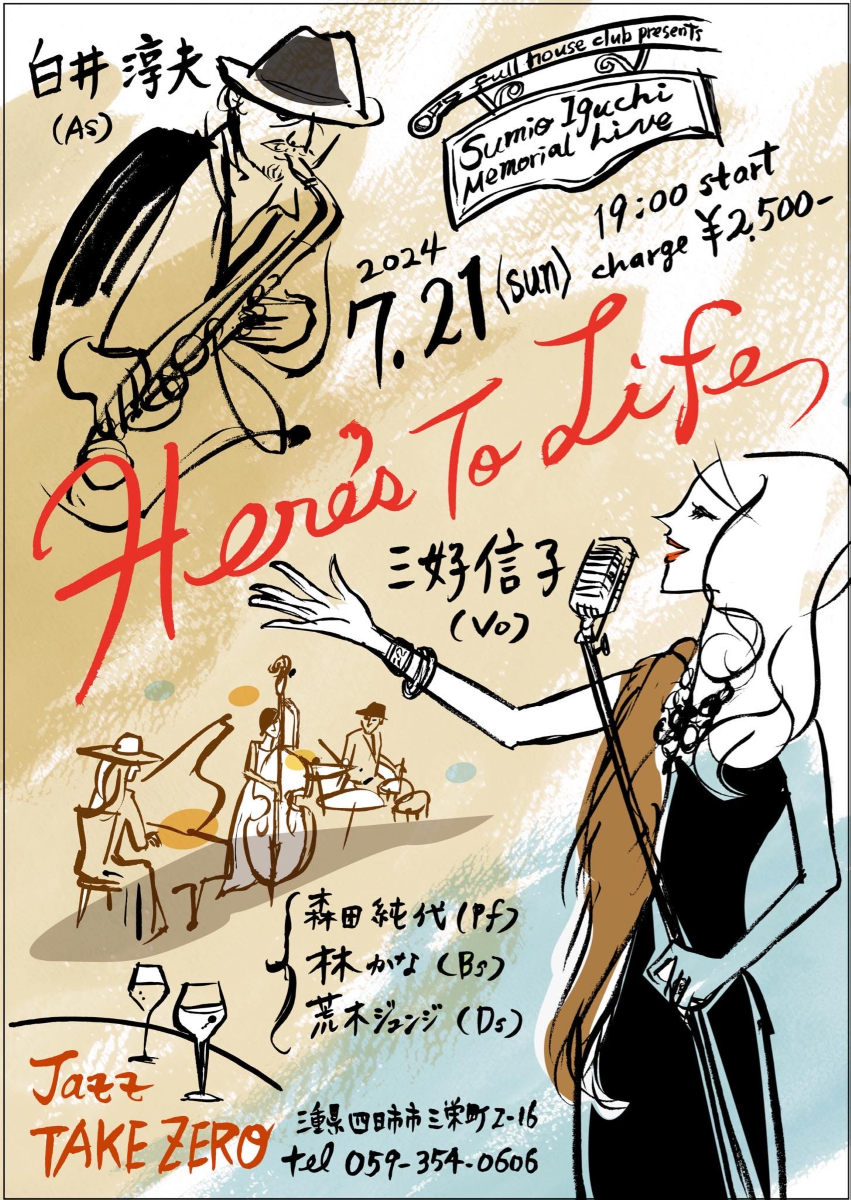 白井 淳夫
(As)
full house club presents
Sumio Iguchi
Memorial Live
2024
7.21 (sun)
19:00 start
charge ¥2,500-
Here's To Life
三好信子
(Vo)
森田純代 (Pf)
林かな (Bs)
荒木ジュンジ (Ds)
Jazz
TAKE ZERO
三重県四日市市三栄町2-16
tel 059-354-0606